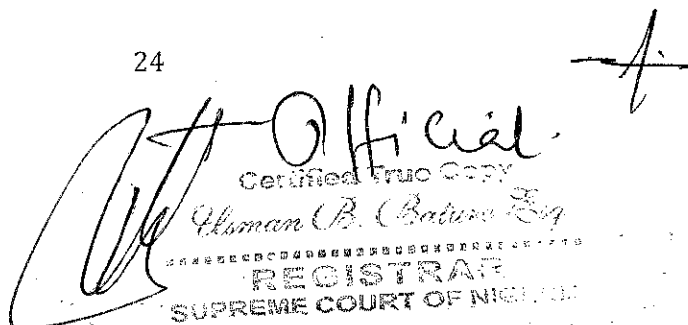 24
Official.
Certified True Copy
Usman B. Bature Esq
REGISTRAR
SUPREME COURT OF NIGERIA